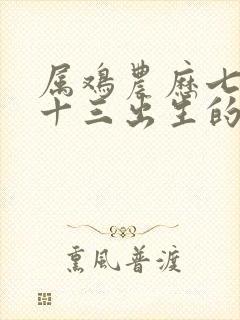 属鸡农历七
十三出生的
熏風普渡